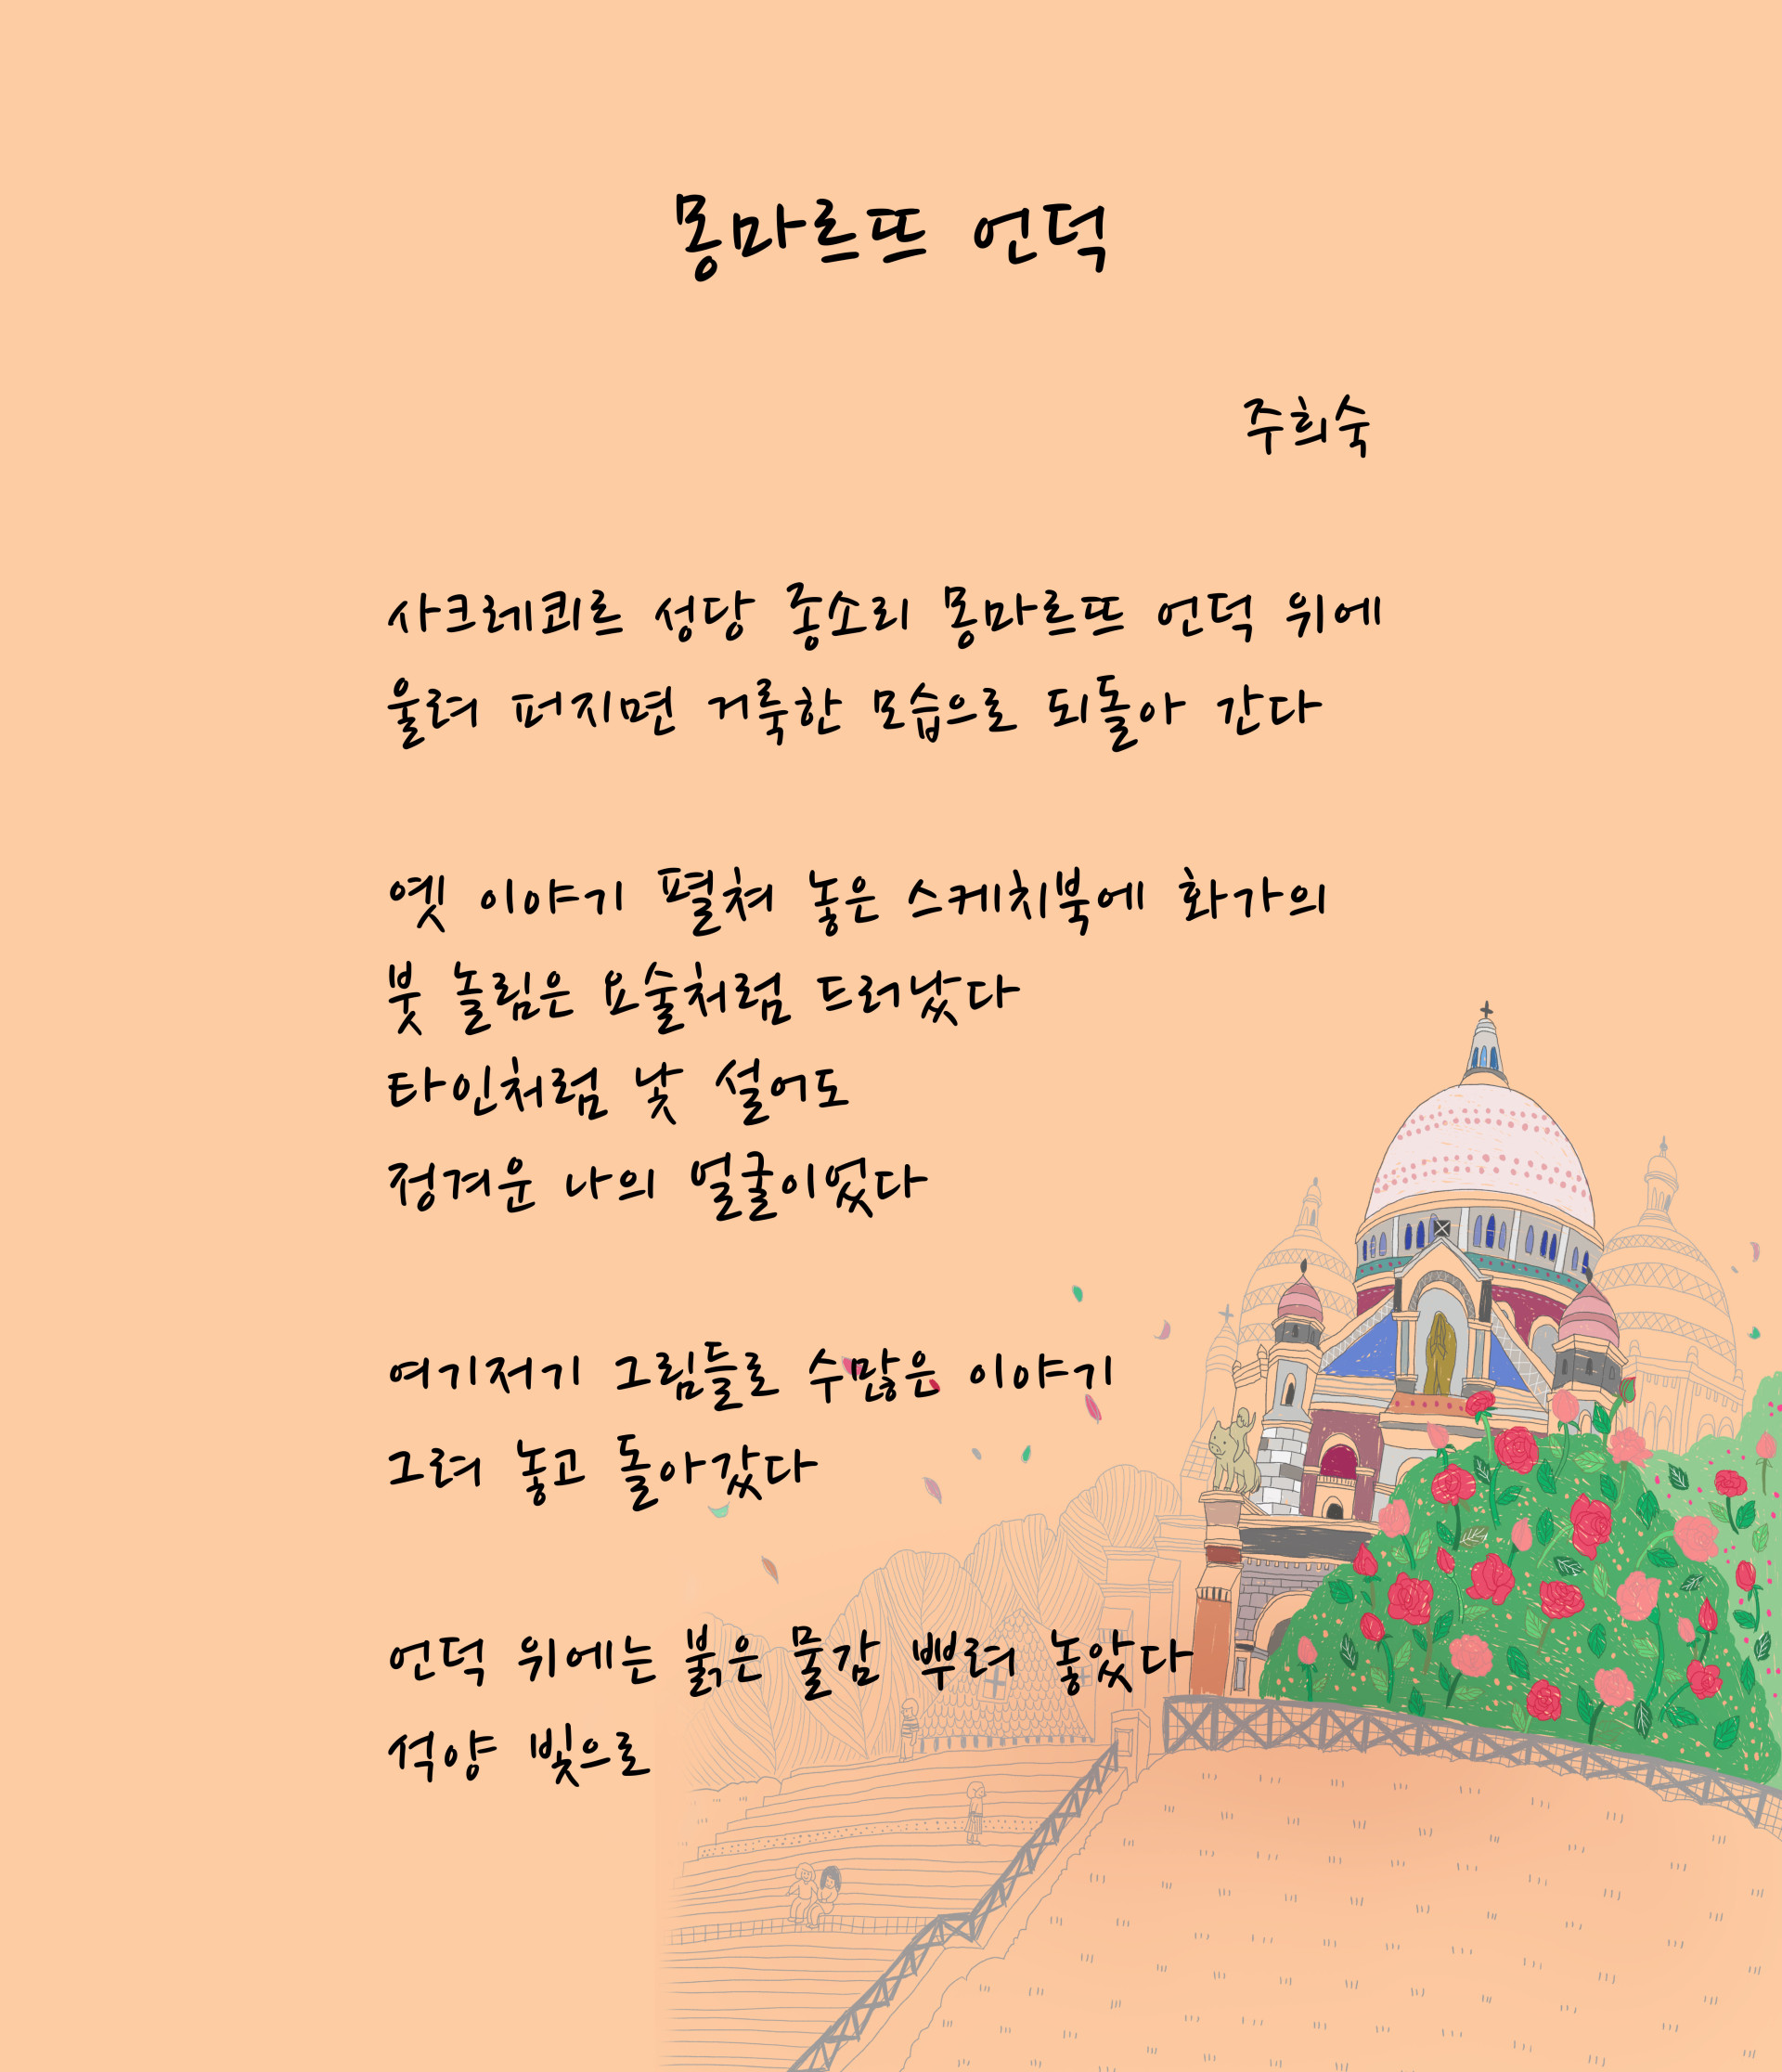 몽마르뜨 언덕
주희숙
사크레쾨르 성당 종소리 몽마르뜨 언덕 위에
울려 퍼지면 거룩한 모습으로 되돌아 간다
옛 이야기 펼쳐 놓은 스케치북에 화가의
붓 놀림은 요술처럼 드러났다
타인처럼 낯 설어도
정겨운 나의 얼굴이었다
여기저기 그림들로 수많은 이야기
그려 놓고 돌아갔다
언덕 위에는 붉은 물감 뿌려 놓았다
석양 빛으로